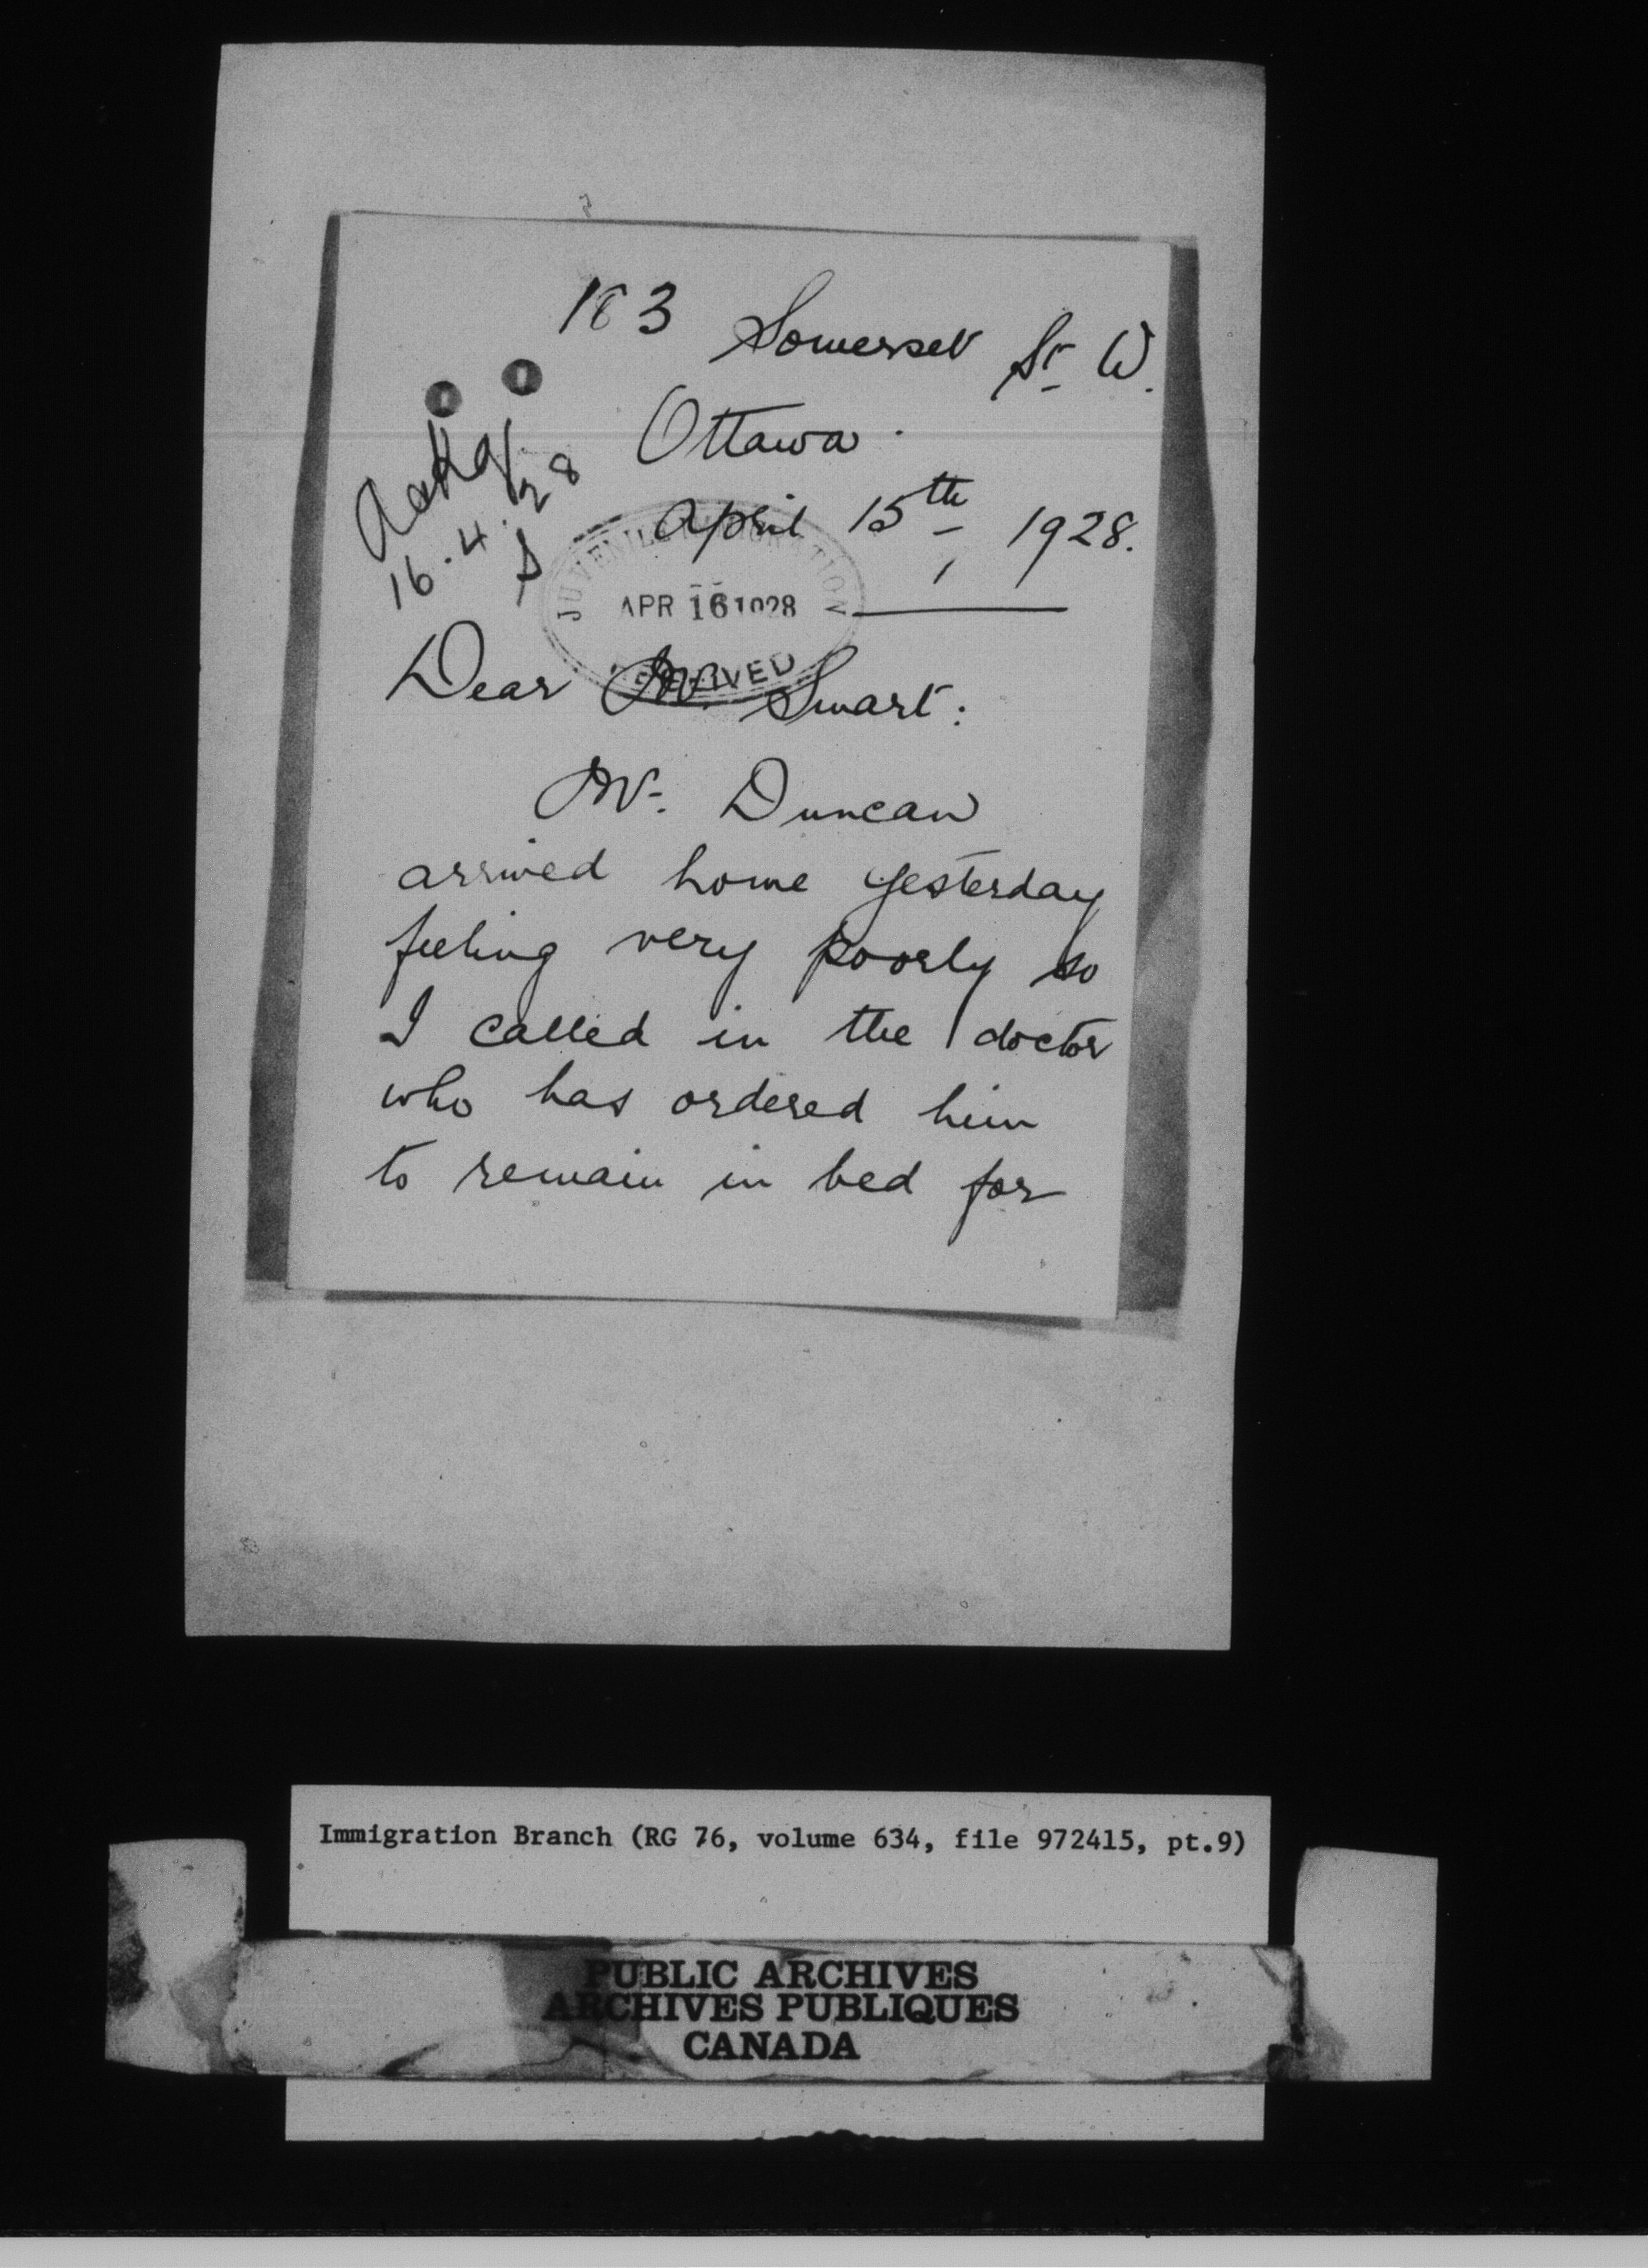 183 Somerset St. W.
Ottawa.
April 15th, 1928.
Ackd/
16.4.28
S
JUVENILE IMMIGRATION
APR 16 1928
RECEIVED
Dear Mr. Smart:
Mr. Duncan
arrived home yesterday
feeling very poorly so
I called in the doctor
who has ordered him
to remain in bed for
Immigration Branch (RG 76, volume 634, file 972415, pt.9)
PUBLIC ARCHIVES
ARCHIVES PUBLIQUES
CANADA